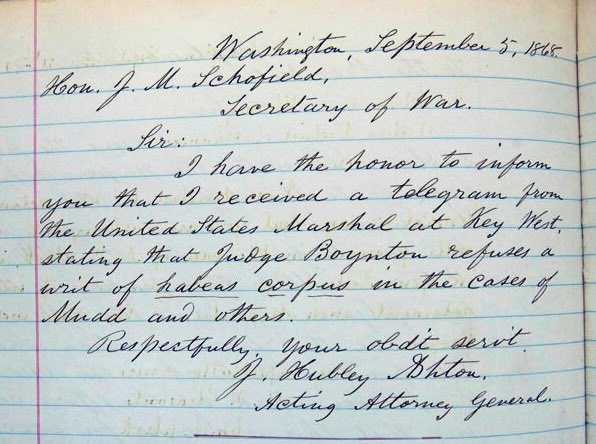 Washington, September 5, 1868.
Hon. J. M. Schofield,
Secretary of War.
Sir:
I have the honor to inform
you that I received a telegram from
the United States Marshal at Key West,
stating that Judge Boynton refuses a
writ of habeas corpus in the cases of
Mudd and others.
Respectfully, your obdt servt.
J. Hubley Ashton,
Acting Attorney General.